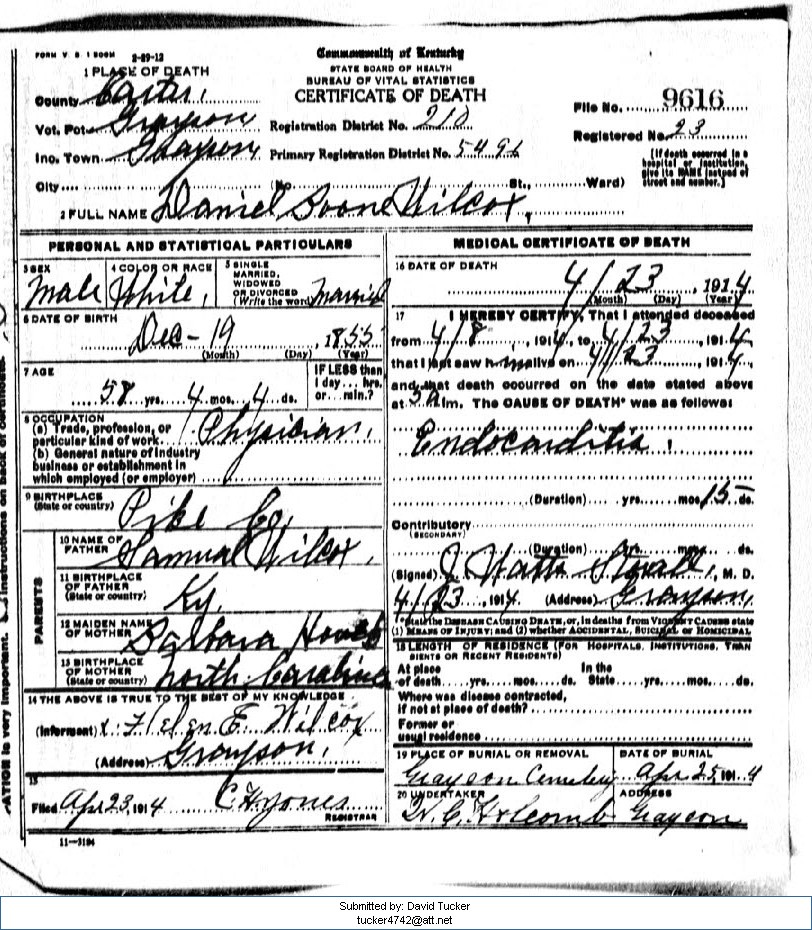 FORM V. S. 1 500M 2-29-12
Commonwealth of Kentucky
STATE BOARD OF HEALTH
BUREAU OF VITAL STATISTICS
CERTIFICATE OF DEATH
1 PLACE OF DEATH
County Carter,
Vot. Pct. Grayson
Registration District No. 210
File No. 9616
Inc. Town Grayson
Primary Registration District No. 5491
Registered No. 23
City (No. St., Ward)
[If death occurred in a hospital or institution, give its NAME instead of street and number.]
2 FULL NAME Daniel Boone Wilcox,
PERSONAL AND STATISTICAL PARTICULARS
3 SEX Male
4 COLOR OR RACE White,
5 SINGLE MARRIED, WIDOWED OR DIVORCED (Write the word) Married
6 DATE OF BIRTH
Dec - 19, 1855
(Month) (Day) (Year)
7 AGE
58 yrs. 4 mos. 4 ds.
IF LESS than 1 day... hrs. or... min.?
8 OCCUPATION
(a) Trade, profession, or particular kind of work Physician,
(b) General nature of industry business or establishment in which employed (or employer)
9 BIRTHPLACE
(State or country) Pike Co,
PARENTS
10 NAME OF FATHER Samual Wilcox,
11 BIRTHPLACE OF FATHER (State or country) Ky.
12 MAIDEN NAME OF MOTHER Barbara
13 BIRTHPLACE OF MOTHER (State or country) North Carolina
14 THE ABOVE IS TRUE TO THE BEST OF MY KNOWLEDGE
(Informent) x Helen E. Wilcox
(Address) Grayson,
15
Filed Apr 23, 1914 C H Jones
REGISTRAR
11-3184
MEDICAL CERTIFICATE OF DEATH
16 DATE OF DEATH
4/23, 1914
(Month) (Day) (Year)
17 I HEREBY CERTIFY, That I attended deceased
from 4/8, 1914, to 4/23, 1914,
that I last saw him alive on 4/23, 1914,
and that death occurred on the date stated above
at 5 A m. The CAUSE OF DEATH* was as follows:
Endocarditis,
(Duration) yrs. mos. 15 ds.
Contributory
(SECONDARY)
(Duration) yrs. mos. ds.
(Signed) J. Watts Stovall, M. D.
4/23, 1914 (Address) Grayson,
*State the DISEASE CAUSING DEATH, or, in deaths from VIOLENT CAUSES state
(1) MEANS OF INJURY; and (2) whether ACCIDENTAL, SUICIDAL or HOMICIDAL
18 LENGTH OF RESIDENCE (FOR HOSPITALS, INSTITUTIONS, TRANSIENTS OR RECENT RESIDENTS)
At place of death yrs. mos. ds. In the State yrs. mos. ds.
Where was disease contracted, if not at place of death?
Former or usual residence
19 PLACE OF BURIAL OR REMOVAL DATE OF BURIAL
Grayson Cemetery Apr 25, 1914
20 UNDERTAKER ADDRESS
H. C. Holcomb Grayson
Submitted by: David Tucker
tucker4742@att.net